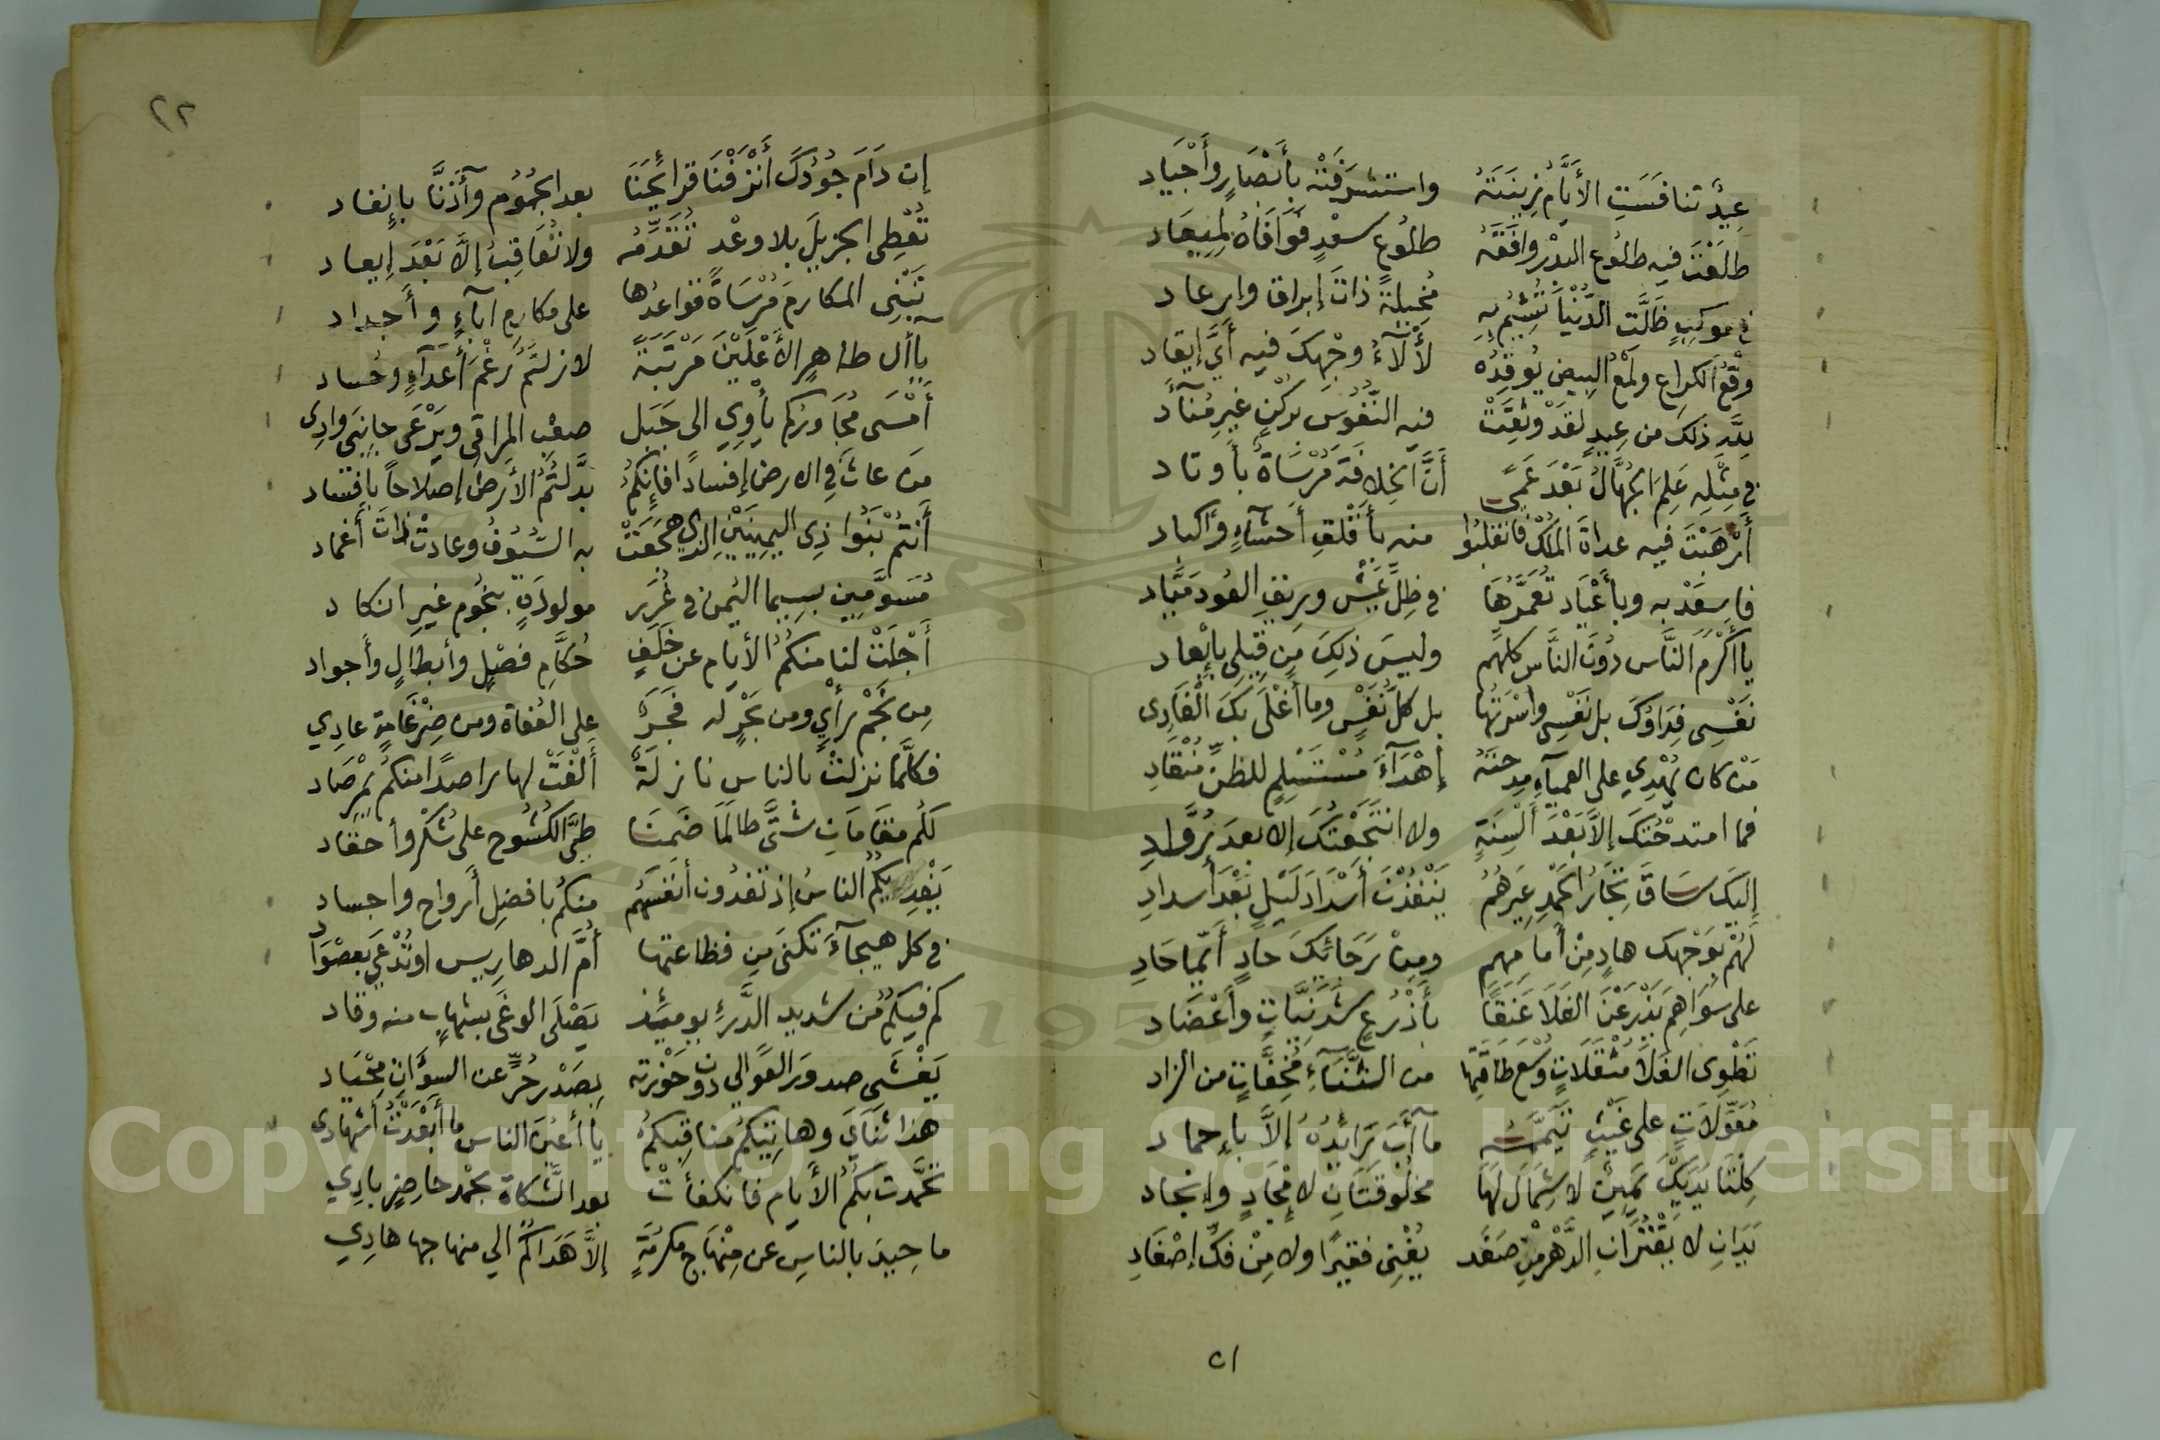 عِيدٌ تنافَسَتِ الأيَّامُ زِينَتَهُ واستشرَفَتْهُ بأَبْصَارٍ وأَجْيَاد
طلَعْتَ فيه طلُوع البدْر وافَقَهُ طلُوع سعْدٍ فوَافَاهُ لِمِيعَاد
في موكبٍ ظَلَّتِ الدُّنْيَا تَشِيمُ بِهِ مُخِيلةً ذاتَ إبراق وإرعاد
وقْعُ الكراع ولمْعُ البِيض يُوقِدُهُ لأْلآءُ وجْهِكَ فيه أيَّ إيقاد
لِلَّهِ ذلكَ من عِيدٍ لقَدْ وثِقَتْ فيه النُّفُوسَ بركْنٍ غيرِ مُنآد
في مِثْلِهِ عَلِمَ الجُهَّالُ بَعْدَ عَمًى أَنَّ الخِلافَةَ مُرْسَاةٌ بأَوتاد
أَرْهَبْتَ فيه عداةَ المُلْك فانقلبُوا منه بأَقْلَقِ أَحشآءٍ وأكباد
فاسعَدْ به وبأَعْيَاد تُعَمَّرُهَا في ظِلِّ عَيْش وريقِ العُود مَيَّاد
يا أكْرَمَ النَّاس دُونَ النَّاس كلهم وليسَ ذلِكَ مِن قِيلِي بإِبْعاد
نفْسِى فِدَاؤكَ بل نَفْسِى وأُسْرَتُها بل كلُّ نَفْسٍ وما أَغْلَى بكَ الْفَادِى
مَنْ كان يُهْدِي على العميآءِ مِدحتَهُ إهْدَآءَ مُسْتَسْلِمٍ للظنِّ مُنْقَادِ
فما امتدحْتُكَ إلاَّ بَعْدَ ألْسِنَةٍ ولا انتَجَعْتُكَ إلا بعدَ رُوَّادِ
إليكَ ساقَ تِجَارُ الحَمْدِ عِيرَهُمُ يَنْفُذْنَ أَسْدَادَ لَيْلٍ بَعْدَ أسدادِ
لَهُمْ بوَجْهِكَ هادٍ مِنْ أَمامِهِمِ ومِنْ رَجَائِكَ حادٍ أَيّما حَادِ
على سَوَاهِمَ يَذْرَعْنَ الفَلَا عَنَقًا بأَذْرُعٍ شَدَنِيَّاتٍ وأَعْضَاد
تَطْوِى الفَلَا مُثْقَلَاتٍ وُسْعَ طَاقَتِها من الثَّنَآءِ مُخِفَّاتٍ من الزاد
مُعَوِّلَاتٍ على غَيْثٍ تَيَمَّمُهُ مآ آبَ رَائِدُهُ إلاَّ بإحماد
كِلْتَا يَدَيْكَ يَمِينٌ لا شِمَالَ لَهَا مخلُوقَتَانِ لإِمْجَادٍ وإنجاد
يَدَانِ لا يَفْتُرَانِ الدَّهْرَ مِنْ صَفَد يُغْنِى فقيرًا ولا مِنْ فَكِّ إصْفَادِ
٥١
٢٢
إن دَامَ جُودُكَ أَنْزَفْنَا قرائحَنَا بعد الجُمُوم وآذَنَّا بإنفاد
تُعْطِى الجزيلَ بلا وعْد تُقَدِّمُه ولا تُعَاقِبُ إلاَّ بَعْدَ إيعاد
تَبْنِى المكارمَ مُرْسَاةً قواعدُها على مكارِمِ آباءٍ وأَجداد
يآ أل طاهرٍ الأَعْلَيْنَ مَرْتَبَةً لا زلتُمُ رَغْمَ أَعْدَآءٍ وحُساد
أَمْسَى مُجَاوِرُكم يأْوِي الى جَبَل صعْبِ المراقى ويَرْعَى جانِبَى وادِى
مَن عاثَ في الارض إفسادًا فإنكُمُ بَدَّلتُمُ الأَرضَ إصلاحاً بإفساد
أَنتُمْ بَنُوا ذِى اليمِينَيْنِ الذي هَجَعَتْ به السُّيُوفُ وعادتْ ذاتَ أغماد
مُسَوَّمِين بسِيما اليُمن في غُرَر مولودَةٍ بنجُوم غيرِ انكاد
أَجْلَتْ لنا منكُمُ الأيام عن خَلَفٍ حُكَّامِ فصْلٍ وأبطالٍ وأجواد
مِن نَجْم رأْيٍ ومن بَحْرٍ له فَجَرٌ على العُفاة ومن ضِرْغَامةٍ عادِي
فكلَّما نزلتْ بالناس نازلَةٌ أَلْفَتْ لها راصدًا منكم بِمِرْصَاد
لكُم مقَامَاتِ شتَّى طالَمَا ضَمنَتْ طىَّ الكشُوح على شُكْر وأحقاد
يَفْدِيكُمُ الناسُ إذ تفدُون أَنفسَهُم منكُم بافضلِ أرواحٍ واجساد
في كل هيجآءَ تكنَى من فظاعتها أُمَّ الدهاريس اوتُدْعَى بعصْوَادِ
كم فيكُمُ مِن شديد الدَّرْءِ يومئذ يَصْلَى الوغَى بشِهابٍ منه وقاد
يَغْشَى صدورَ العَوالي دون حَوْزته بصَدْر حُرٍّ عن السوْآتِ مِحْيَاد
هذا ثنَآئِي وهاتِيكُم مناقِبُكمُ يا أعيُنَ الناس ما أَبْعَدْتُ أَشْهَادِى
تحَمَّدت بكُمُ الأَيام فانكفأتْ بعد الشَّكاة بحَمْد حاضِرٍ بادِي
ما حِيدَ بالناسِ عن مِنْهَاجِ مَكرُمَةٍ إلاَّ هَدَاكُمْ الي منهاجها هادِي